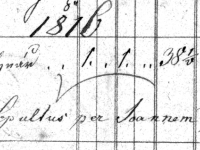 1816
.. 1. .. 1. .. 38½
Sepultus per Joannem